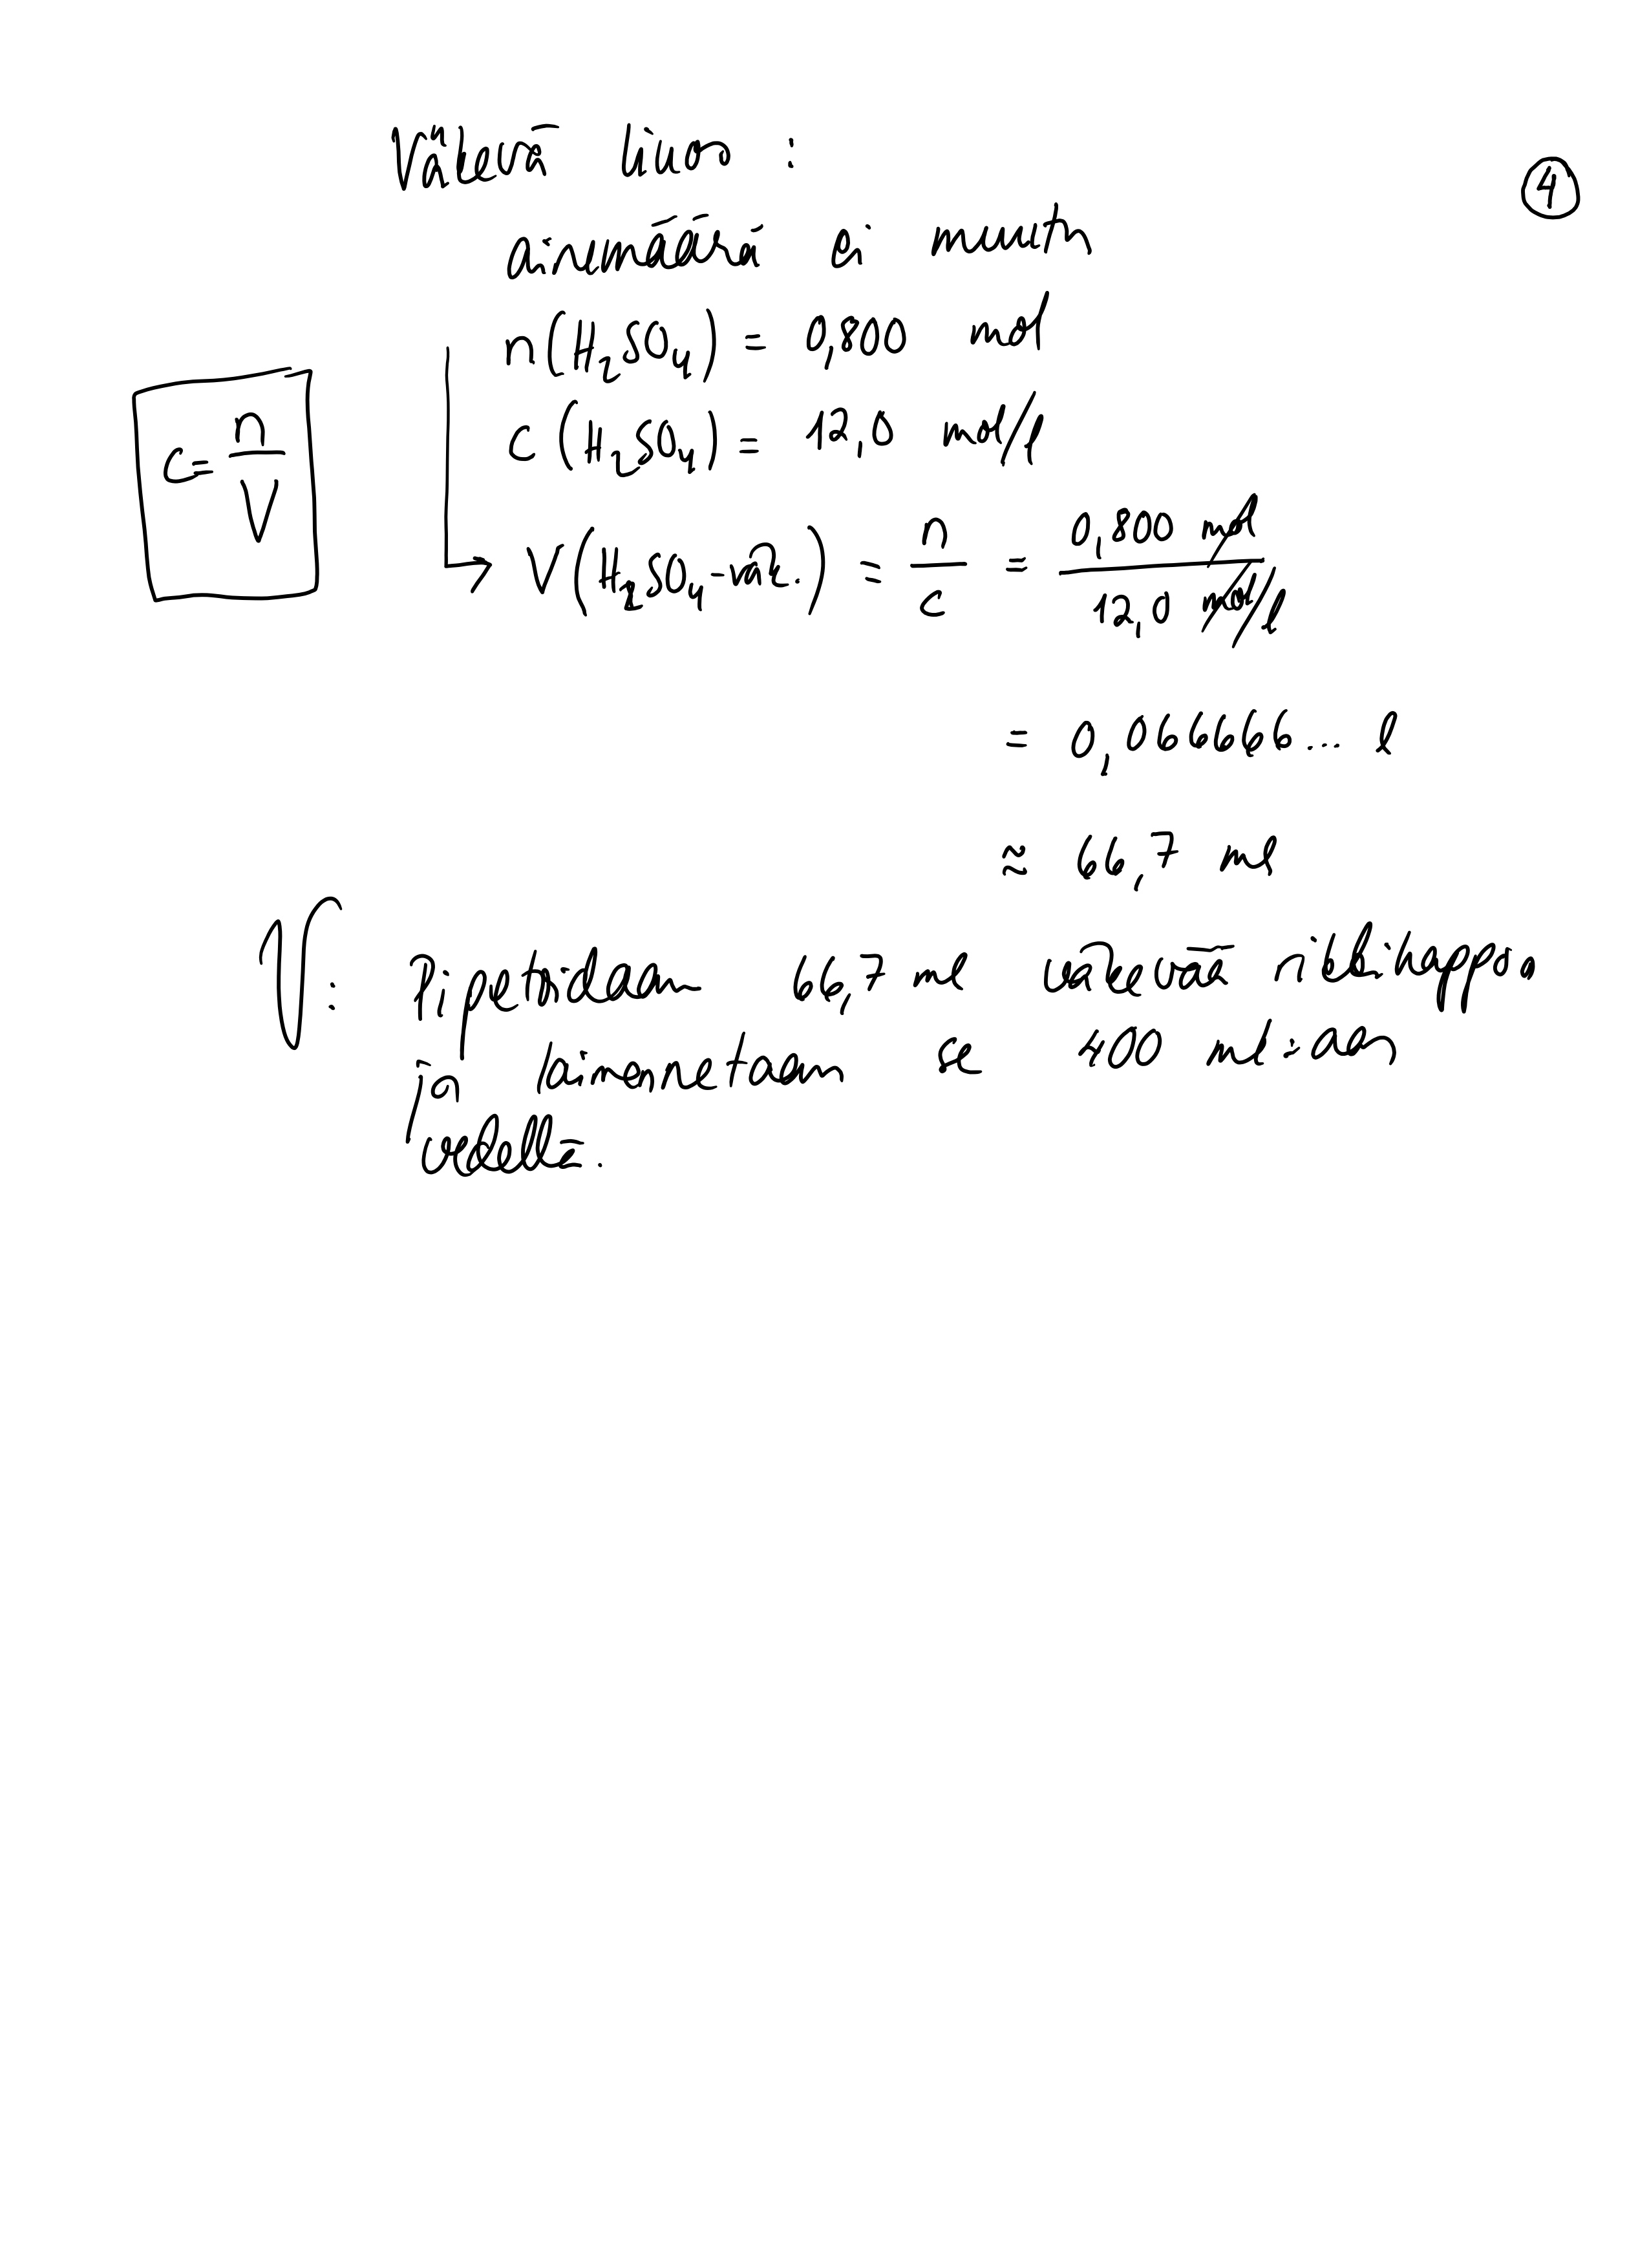 Väkevä liuos :
④
ainemäärä ei muutu
n(H₂SO₄) = 0,800 mol
c = n/V
c (H₂SO₄) = 12,0 mol/l
V(H₂SO₄-väk.) = n/c = 0,800 mol / 12,0 mol/l
= 0,066666... l
≈ 66,7 ml
V: Pipetoidaan 66,7 ml väkevää rikkihappoa
ja laimennetaan se 400 ml:aan
vedellä.